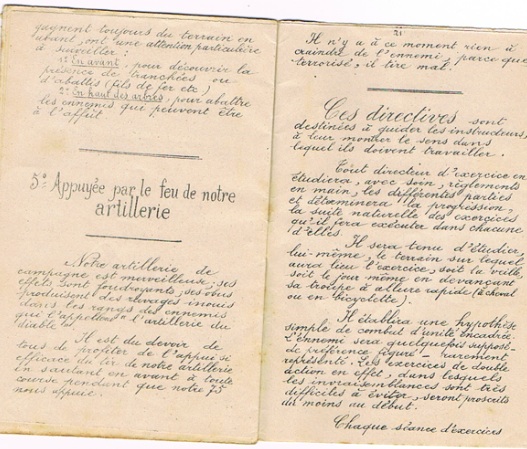 gagnent toujours du terrain en
avant, ont une attention particulière
à surveiller :
1º En avant, pour découvrir la
présence de tranchées ou
d'abattis (fils de fer etc)
2º En haut des arbres, pour abattre
les ennemis que peuvent être
à l'affût
5º Appuyée par le feu de notre
artillerie
Notre artillerie de
campagne est merveilleuse ; ses
effets sont foudroyants, ses obus
produisent des ravages inouis
dans les rangs des ennemis
qui l'appellent "l'artillerie du
diable".
Il est du devoir de
tous de profiter de l'appui si
efficace du tir de notre artillerie
en sautant en avant à toute
course pendant que notre 75
nous appuie.
21
Il n'y a à ce moment rien à
craindre de l'ennemi, parce que
terrorisé, il tire mal.
Ces directives sont
destinées à guider les instructeurs,
à leur montrer le sens dans
lequel ils doivent travailler.
Tout directeur d'exercice en
étudiera, avec soin, règlements
en main, les différentes parties
et déterminera la progression,
la suite naturelle des exercices
qu'il fera exécuter dans chacune
d'elles.
Il sera tenu d'étudier,
lui-même, le terrain sur lequel
aura lieu l'exercice, soit la veille,
soit le jour même en devançant
sa troupe à allure rapide (à cheval
ou en bicyclette).
Il établira une hypothèse
simple de combat d'unité encadrée.
L'ennemi sera quelquefois supposé -
de préférence figuré - rarement
représenté. Les exercices de double
action en effet, dans lesquels
les invraisemblances sont très
difficiles à éviter, seront proscrits
du moins au début.
Chaque séance d'exercices